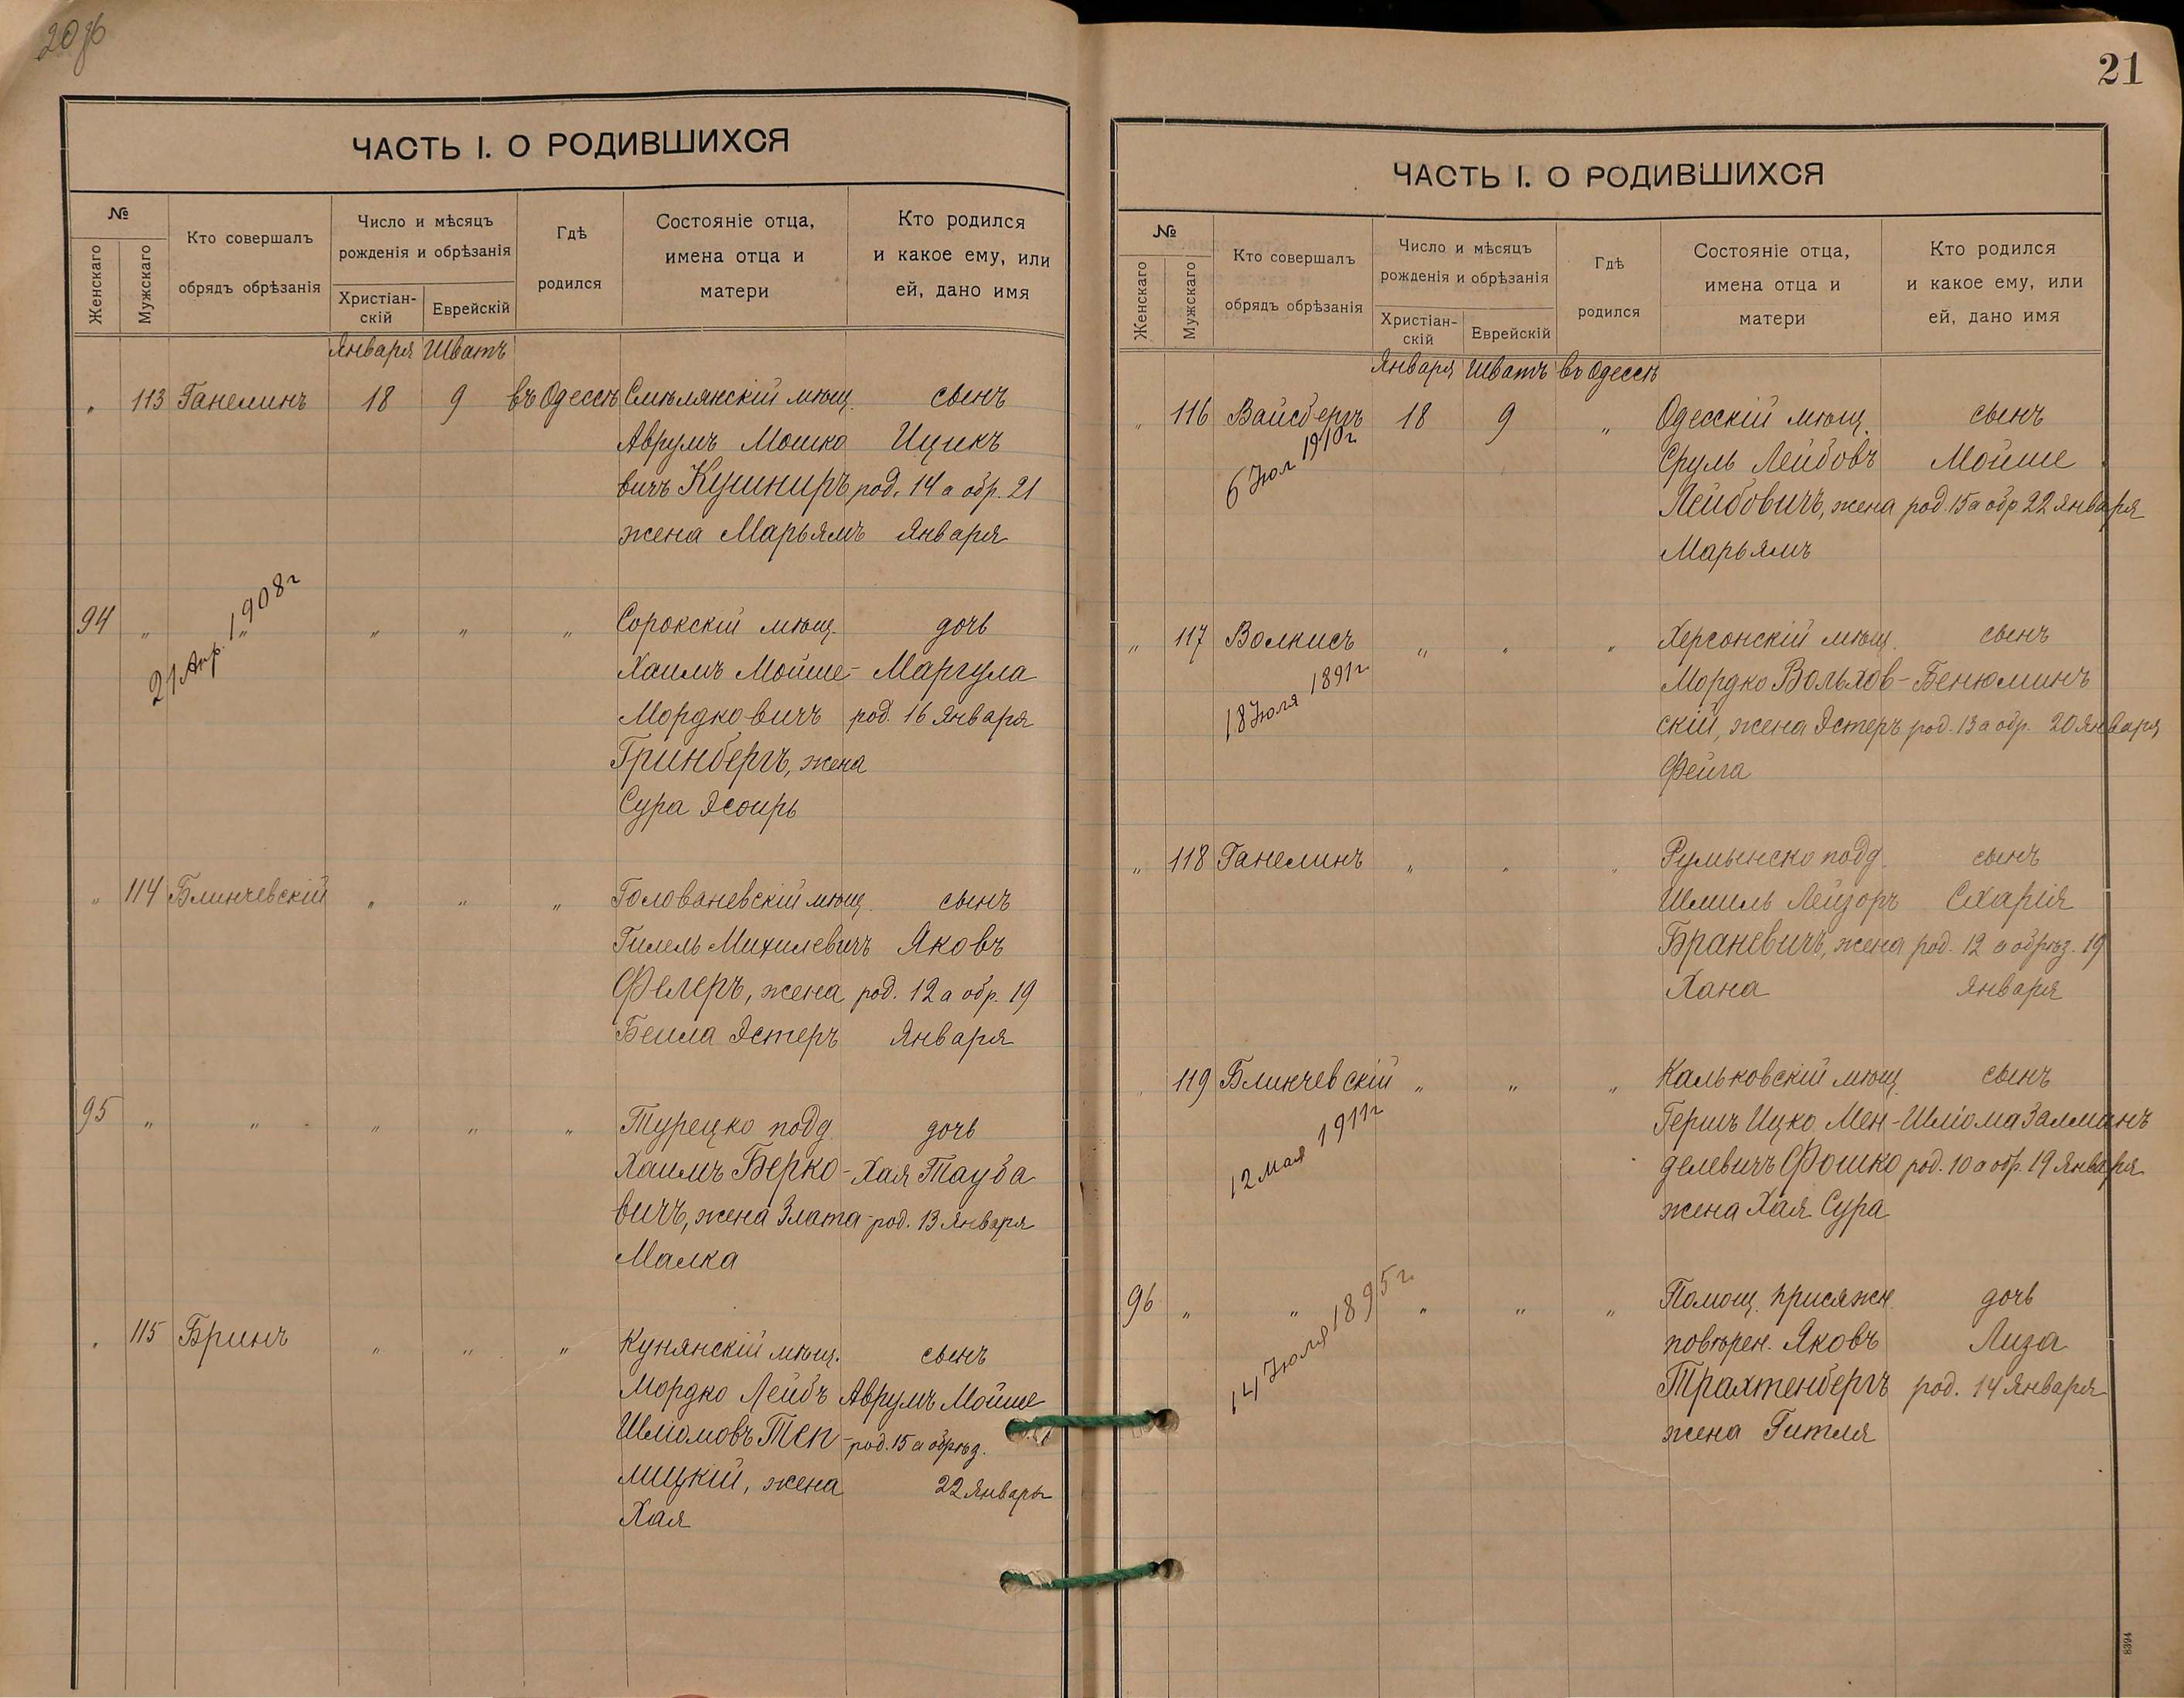 20 об
ЧАСТЬ I. О РОДИВШИХСЯ
№
Женскаго
Мужскаго
Кто совершалъ
обрядъ обрѣзанія
Число и мѣсяцъ
рожденія и обрѣзанія
Христіан-
скій
Еврейскій
Гдѣ
родился
Состояніе отца,
имена отца и
матери
Кто родился
и какое ему, или
ей, дано имя
Января Шватъ
„ 113 Ганелинъ 18 9 въ Одессѣ Смѣлянскій мѣщ. сынъ
Аврумъ Мошко Ицикъ
вичъ Кушниръ род. 14 а обр. 21
жена Марьямъ Января
94 „ „ „ „ „ Сорокскій мѣщ. дочь
21 Апр. 1908 г
Хаимъ Мойше- Маргула
Мордковичъ род. 16 Января
Гринбергъ, жена
Сура Эсѳирь
„ 114 Блинчевскій „ „ „ Голованевскій мѣщ. сынъ
Гилель Михилевичъ Яковъ
Фелеръ, жена род. 12 а обр. 19
Беила Эстеръ Января
95 „ „ „ „ „ Турецко подд. дочь
Хаимъ Берко- Хая Тауба
вичъ, жена Злата- род. 13 Января
Малка
„ 115 Бринъ „ „ „ Кунянскій мѣщ. сынъ
Мордко Лейбъ Аврумъ Мойше
Шліомовъ Теп- род. 15 а обрѣз.
лицкій, жена 22 Января
Хая
21
ЧАСТЬ I. О РОДИВШИХСЯ
№
Женскаго
Мужскаго
Кто совершалъ
обрядъ обрѣзанія
Число и мѣсяцъ
рожденія и обрѣзанія
Христіан-
скій
Еврейскій
Гдѣ
родился
Состояніе отца,
имена отца и
матери
Кто родился
и какое ему, или
ей, дано имя
Января Шватъ въ Одессѣ
„ 116 Вайсбергъ 18 9 „ Одесскій мѣщ. сынъ
6 Іюл 1910 г.
Сруль Лейбовъ Мойше
Лейбовичъ, жена род. 15 а обр 22 Января
Марьямъ
„ 117 Волкисъ „ „ „ Херсонскій мѣщ. сынъ
18 Іюля 1891 г
Мордко Вольхов- Бенюминъ
скій, жена Эстеръ род. 13 а обр. 20 Января
Фейга
„ 118 Ганелинъ „ „ „ Румынско подд. сынъ
Шмиль Лейзоръ Схарія
Браневичъ, жена род. 12 а обрѣз. 19
Хана Января
119 Блинчевскій „ „ „ Кальковскій мѣщ. сынъ
12 мая 1911 г
Гершъ Ицко Мен- Шліома Залманъ
делевичъ Фошко род. 10 а обр. 19 Января
жена Хая Сура
96 „ „ „ „ „ Помощ. присяжн. дочь
14 Іюля 1895 г.
повѣрен. Яковъ Лиза
Трахтенбергъ род. 14 Января
жена Гитля
8394